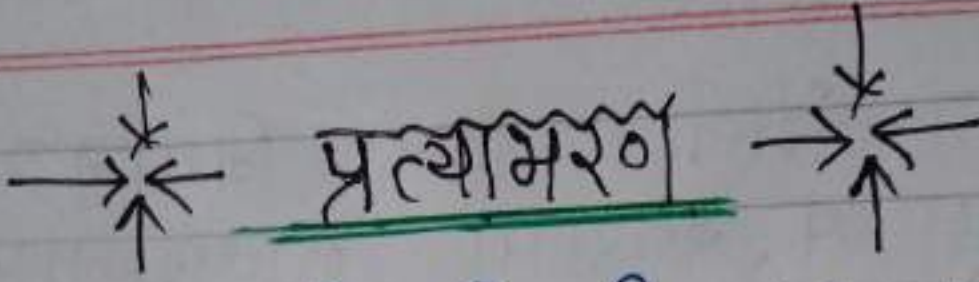 प्रत्याभरण